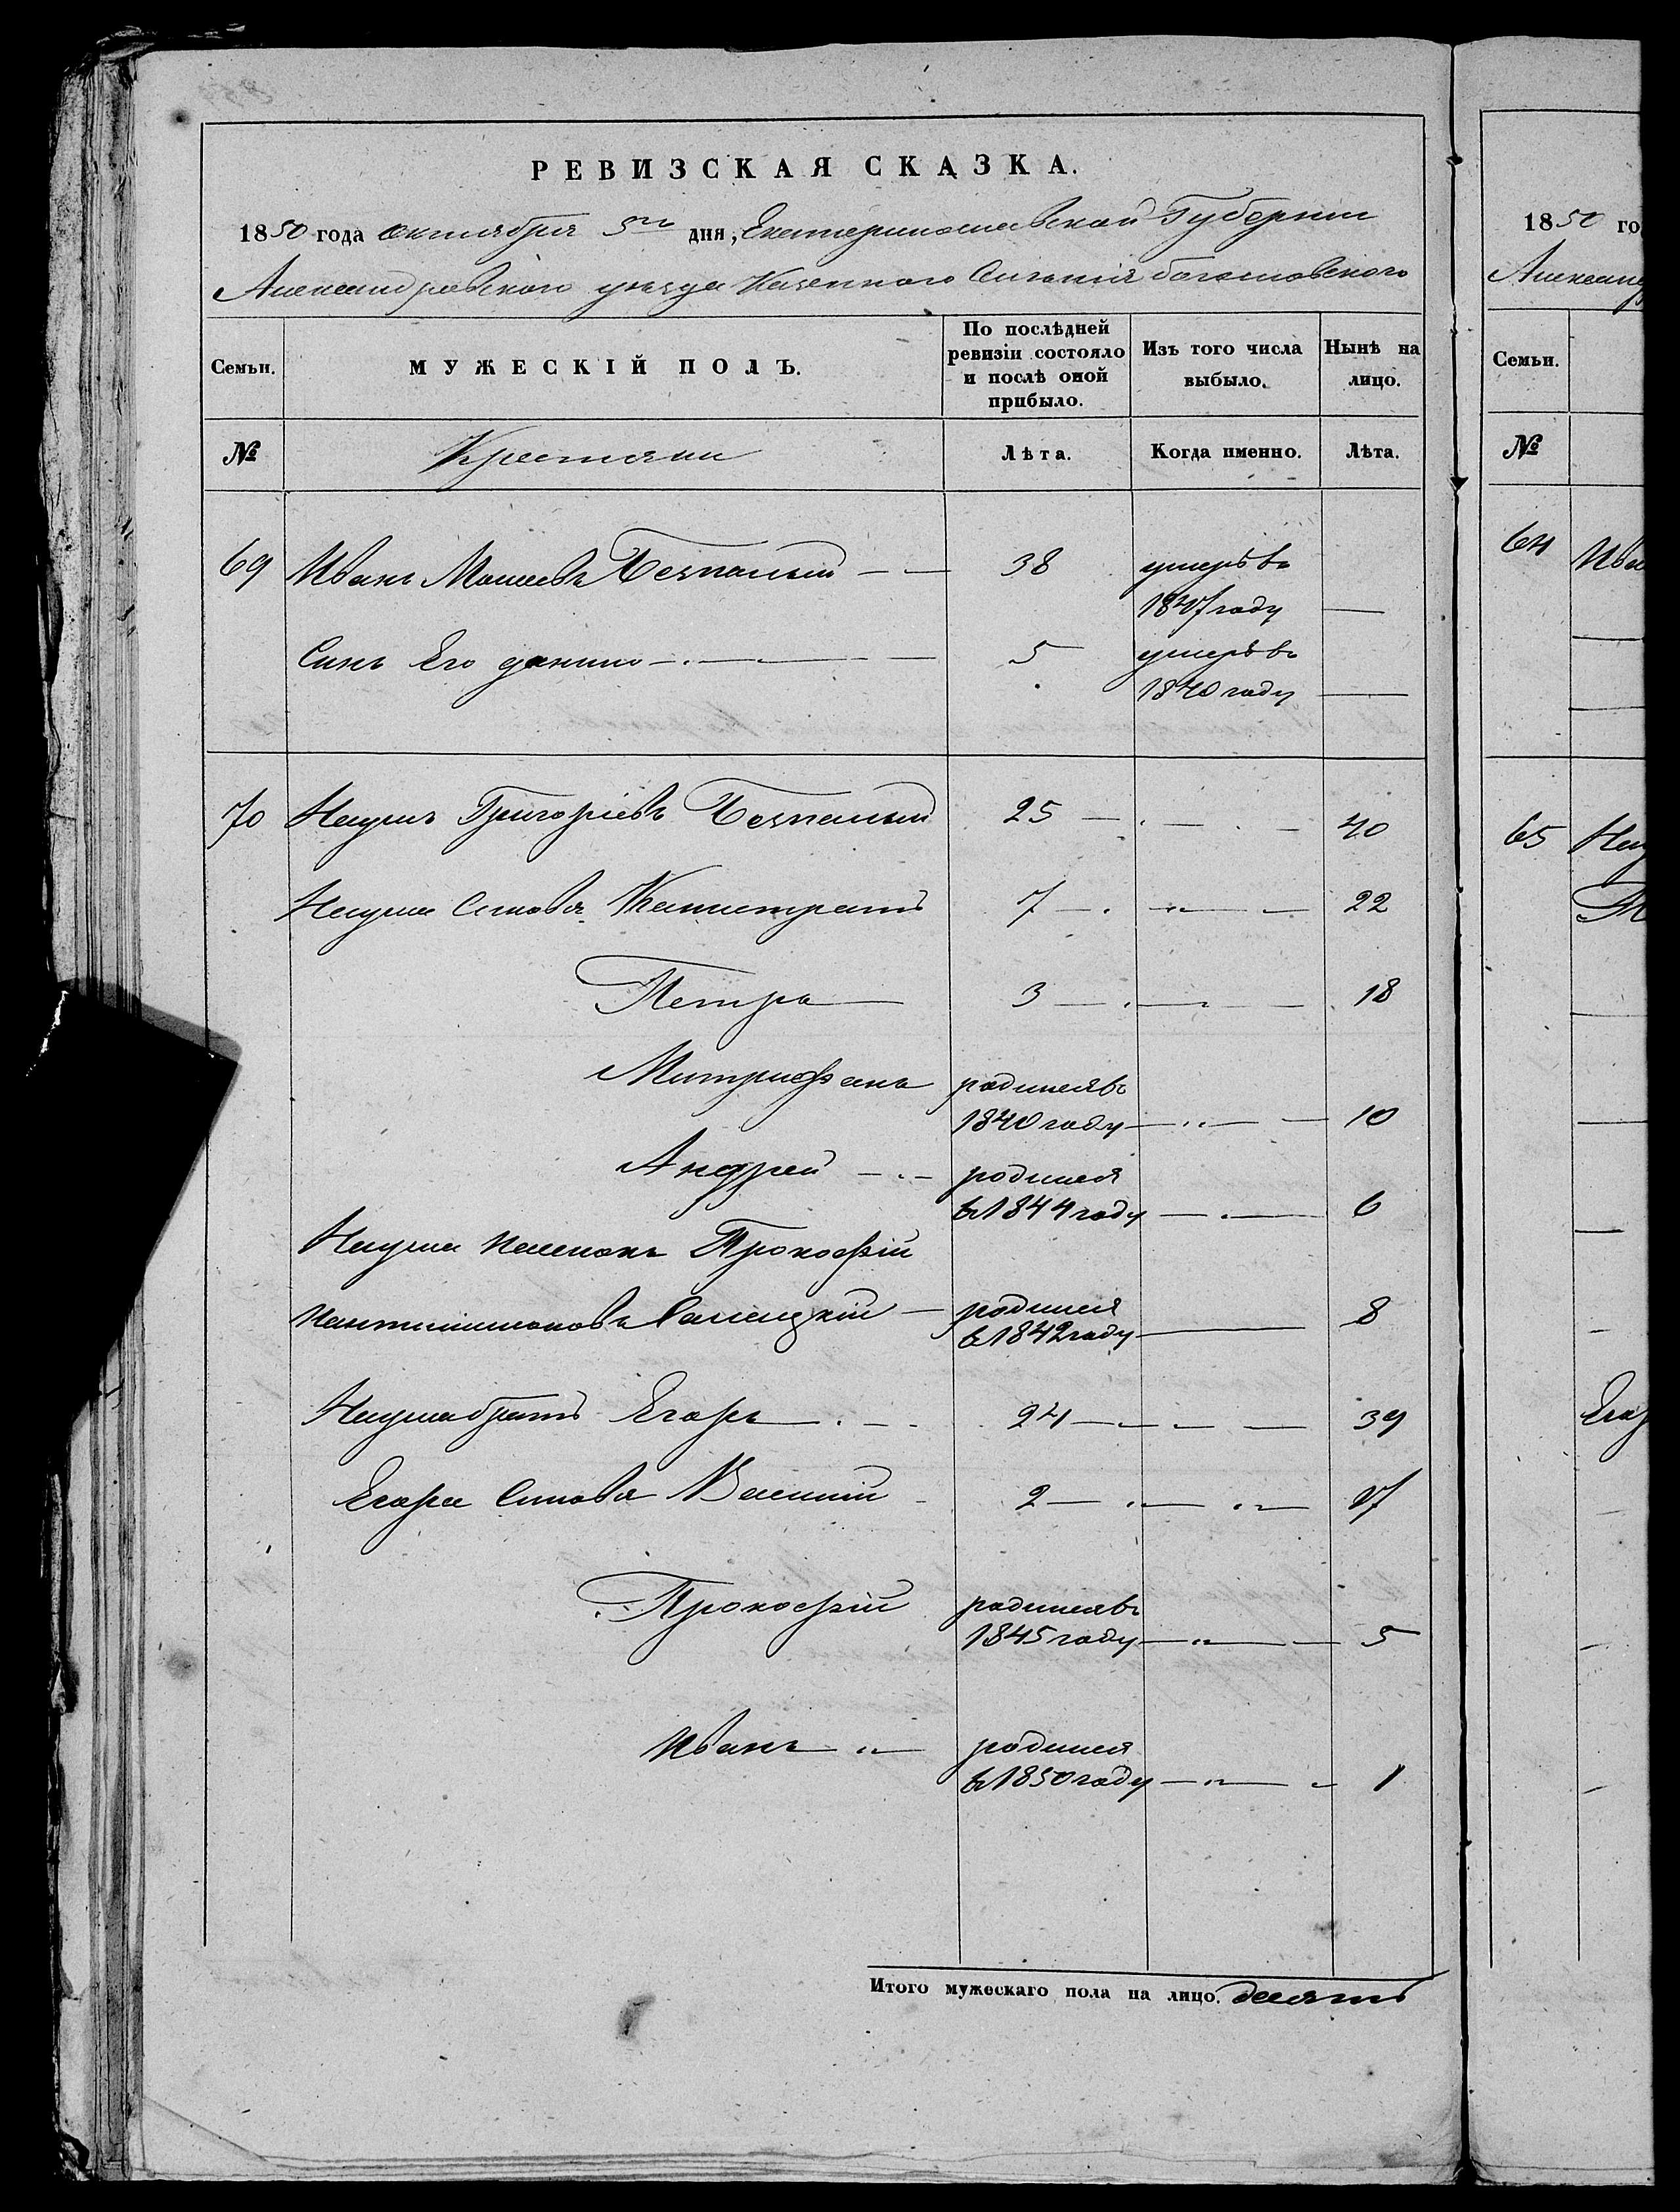 РЕВИЗСКАЯ СКАЗКА.
1850 года октября 5го дня, Екатеринославской Губернии
Александровского уезда Казенного Силения
Семьи.
МУЖЕСКІЙ ПОЛЪ.
По послѣдней ревизіи состояло и послѣ оной прибыло.
Изъ того числа выбыло.
Нынѣ на лицо.
№
Крестяни
Лѣта.
Когда именно.
Лѣта.
69 Иванъ Мосеевъ Безпалый — — 38 умеръ въ
1847 году —
Синъ Его данило — 5 умеръ въ
1840 году —
70 Наумъ Григоріевъ Безпалый 25 — 40
Наума Синовя Калистратъ 7 — 22
Петръ — 3 — 18
Митрофанъ родился въ
1840 году — 10
Андрей — родился
въ 1844 году — 6
Наума Прокофій
Пантилимоновъ — родился 8
въ 1842 году —
Наума братъ Егоръ — 24 — 39
Егора Синовя Василій 2 — 17
Прокофій родился въ
1845 году — 5
Иванъ — родился
въ 1850 году — 1
Итого мужескаго пола на лицо. десять
1850 го
Александ
Семьи.
№
64 Ива
65 Нау
Егор